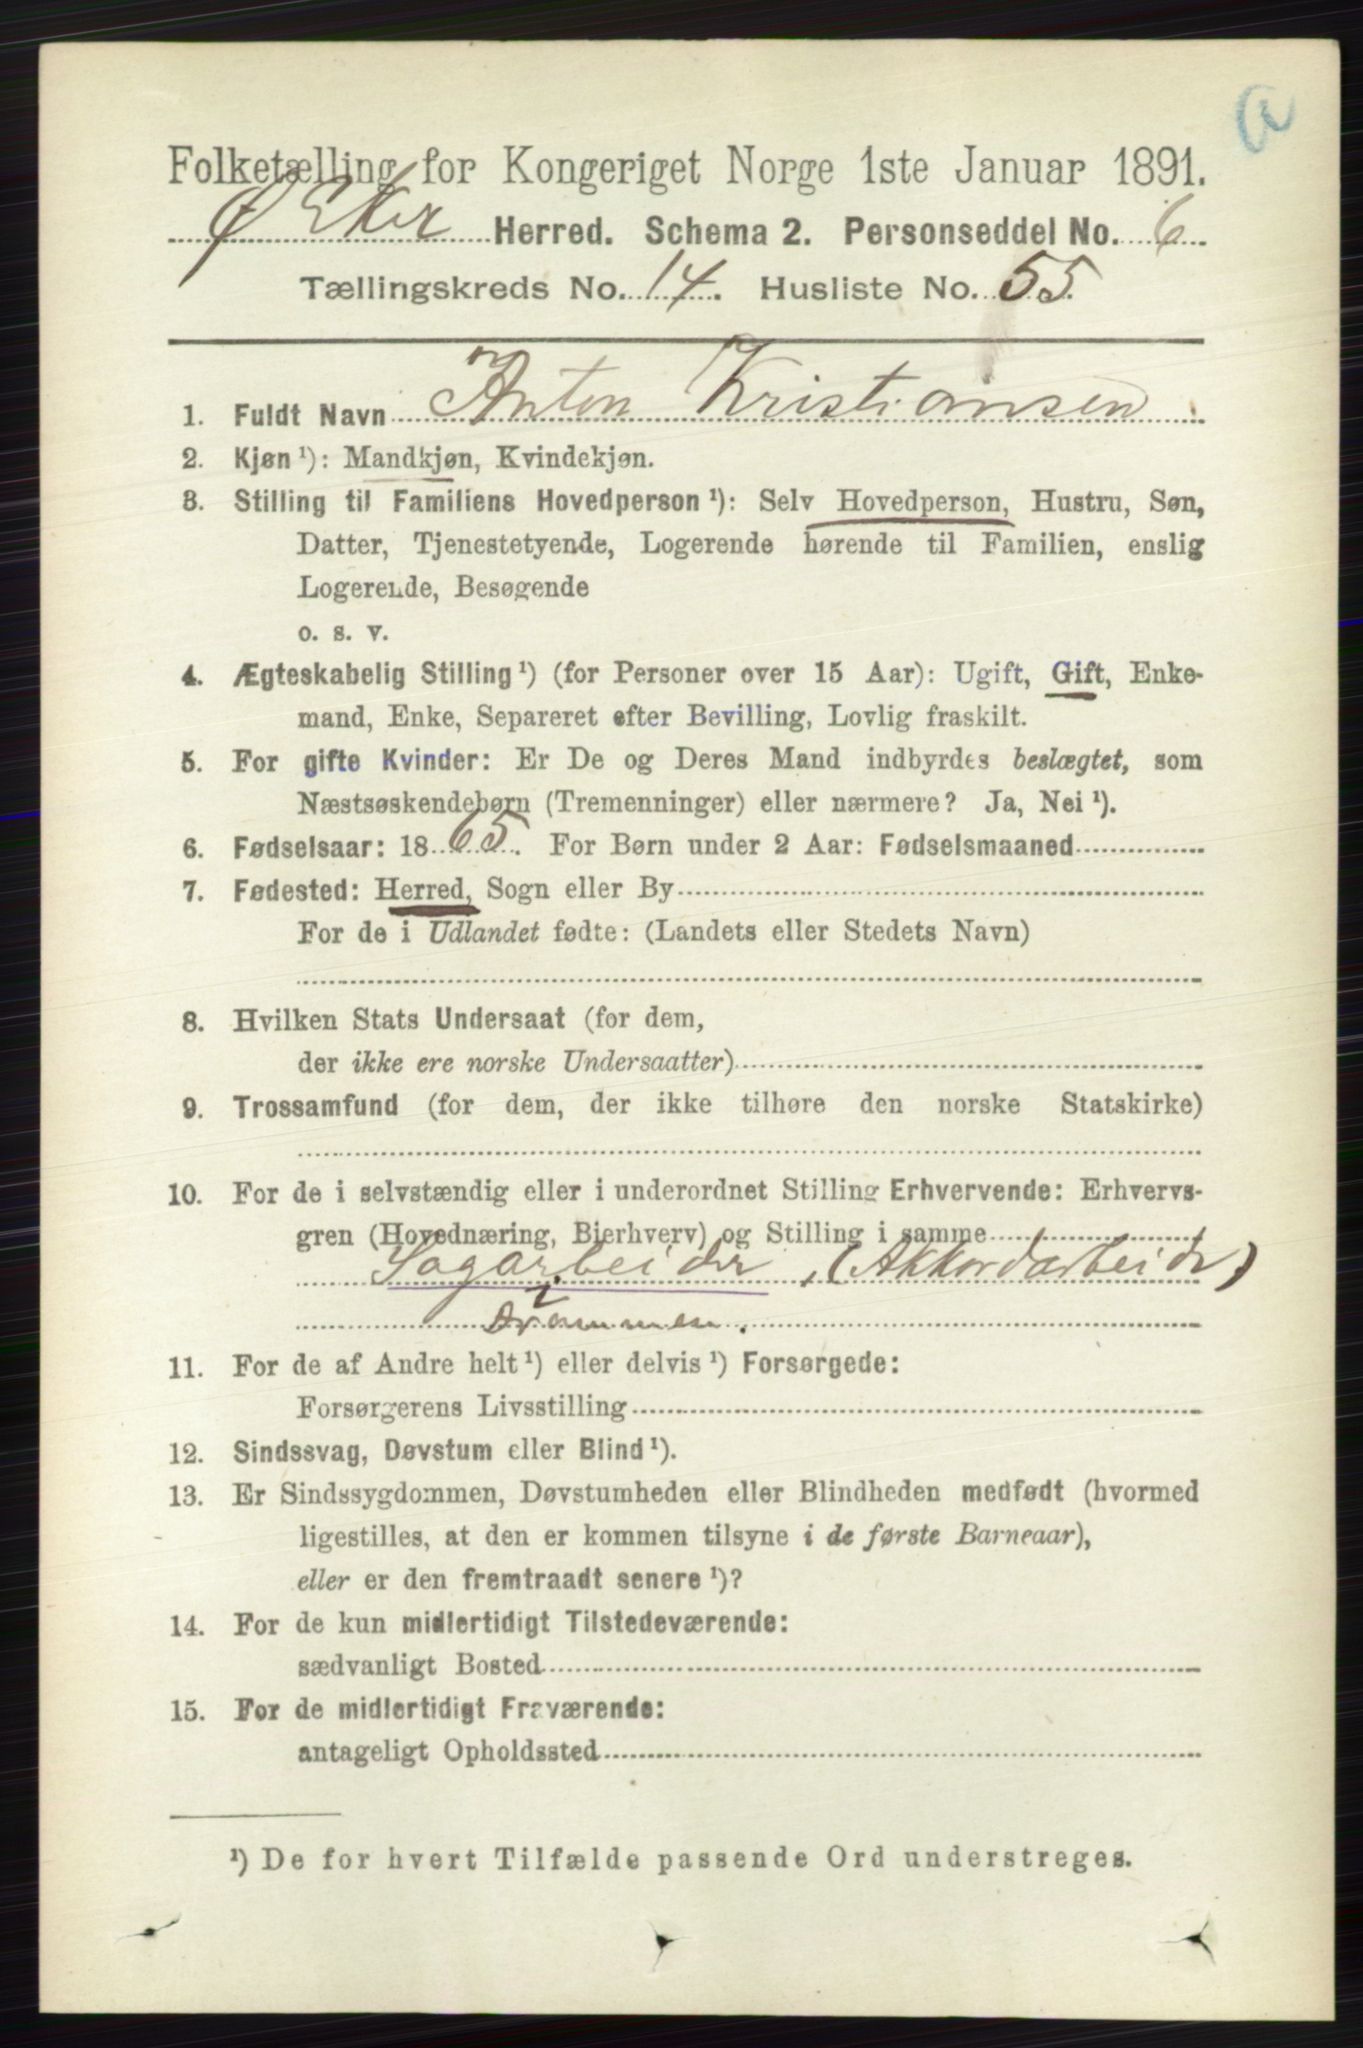 a
Folketælling for Kongeriget Norge 1ste Januar 1891.
Ø Eker Herred. Schema 2. Personseddel No. 6
Tællingskreds No. 14. Husliste No. 55.
1. Fuldt Navn Anton Kristiansen
2. Kjøn ¹): Mandkjøn, Kvindekjøn.
3. Stilling til Familiens Hovedperson ¹): Selv Hovedperson, Hustru, Søn,
Datter, Tjenestetyende, Logerende hørende til Familien, enslig
Logerende, Besøgende
o. s. v.
4. Ægteskabelig Stilling ¹) (for Personer over 15 Aar): Ugift, Gift, Enke-
mand, Enke, Separeret efter Bevilling, Lovlig fraskilt.
5. For gifte Kvinder: Er De og Deres Mand indbyrdes beslægtet, som
Næstsøskendebørn (Tremenninger) eller nærmere? Ja, Nei ¹).
6. Fødselsaar: 1865. For Børn under 2 Aar: Fødselsmaaned
7. Fødested: Herred, Sogn eller By
For de i Udlandet fødte: (Landets eller Stedets Navn)
8. Hvilken Stats Undersaat (for dem,
der ikke ere norske Undersaatter)
9. Trossamfund (for dem, der ikke tilhøre den norske Statskirke)
10. For de i selvstændig eller i underordnet Stilling Erhvervende: Erhvervs-
gren (Hovednæring, Bierhverv) og Stilling i samme
Sagarbeider, (Akkordarbeider)
Drammen.
11. For de af Andre helt ¹) eller delvis ¹) Forsørgede:
Forsørgerens Livsstilling
12. Sindssvag, Døvstum eller Blind ¹).
13. Er Sindssygdommen, Døvstumheden eller Blindheden medfødt (hvormed
ligestilles, at den er kommen tilsyne i de første Barneaar),
eller er den fremtraadt senere ¹)?
14. For de kun midlertidigt Tilstedeværende:
sædvanligt Bosted
15. For de midlertidigt Fraværende:
antageligt Opholdssted
¹) De for hvert Tilfælde passende Ord understreges.